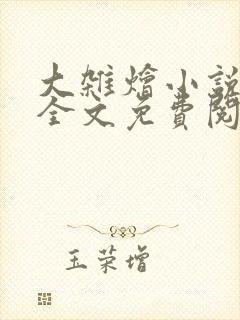 大雑燴小説
全文免費閱
玉荣增